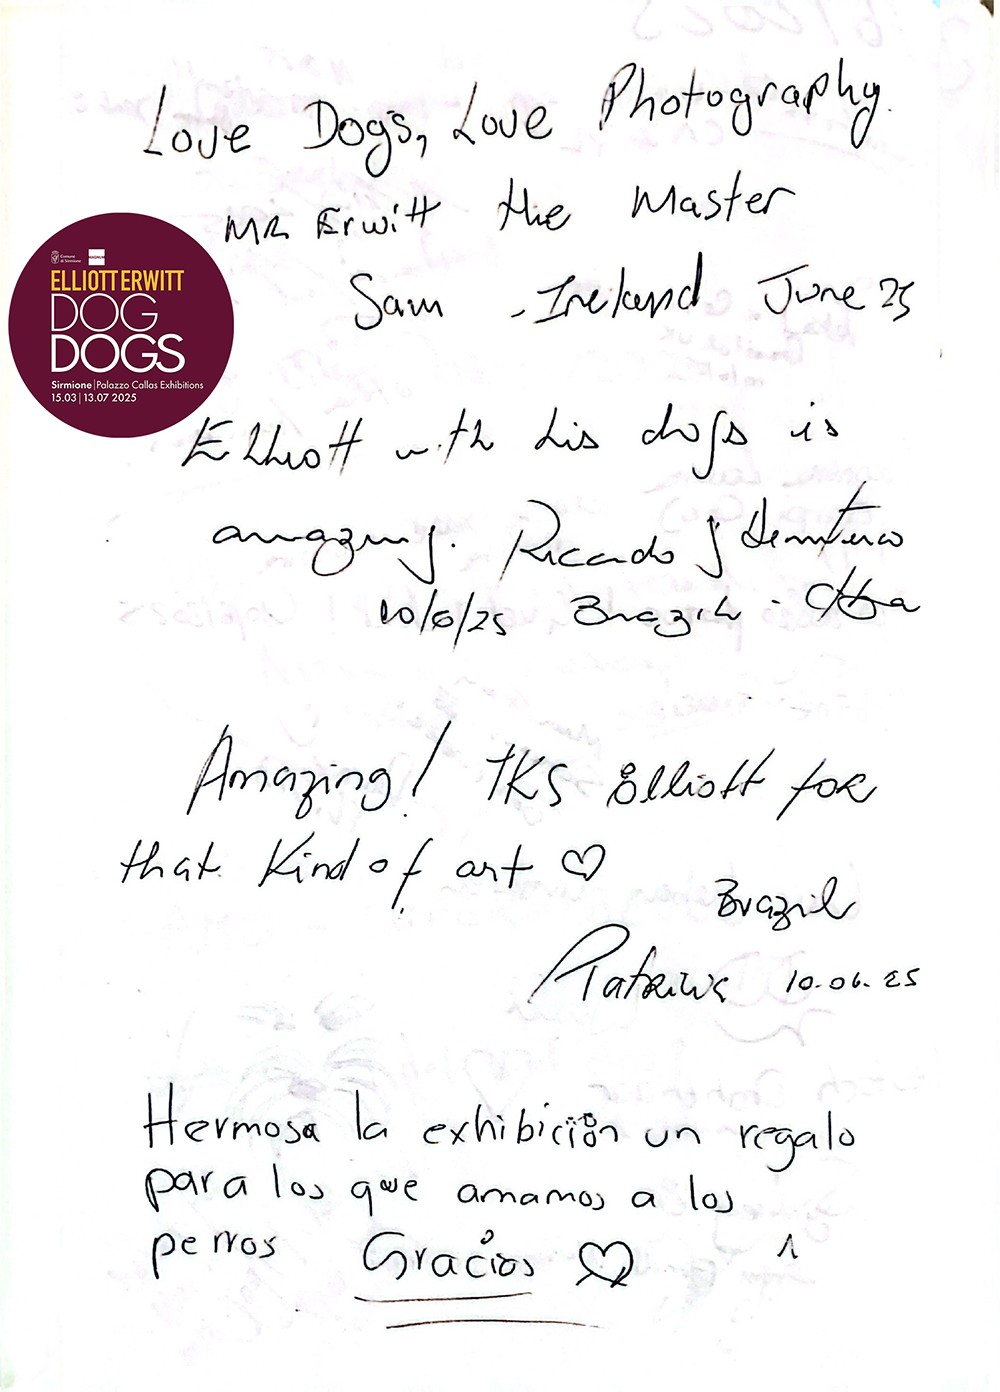 Love Dogs, Love Photography.
MR Erwitt the Master
Sam - Ireland June 25
Comune
di Sirmione
MAGNUM
ELLIOTT ERWITT
DOG
DOGS
Sirmione | Palazzo Callas Exhibitions
15.03 | 13.07 2025
Elliott with his dogs is
amazing. Ricardo
10/6/25 Brazil -
Amazing! TKS Elliott for
that kind of art ♡
Brazil
10.06.25
Hermosa la exhibición un regalo
para los que amamos a los
perros Gracias ♡